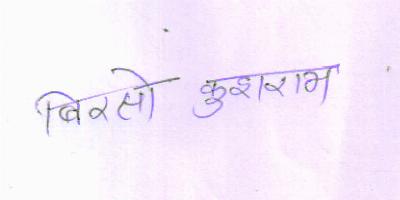 बिरसो कुशराम